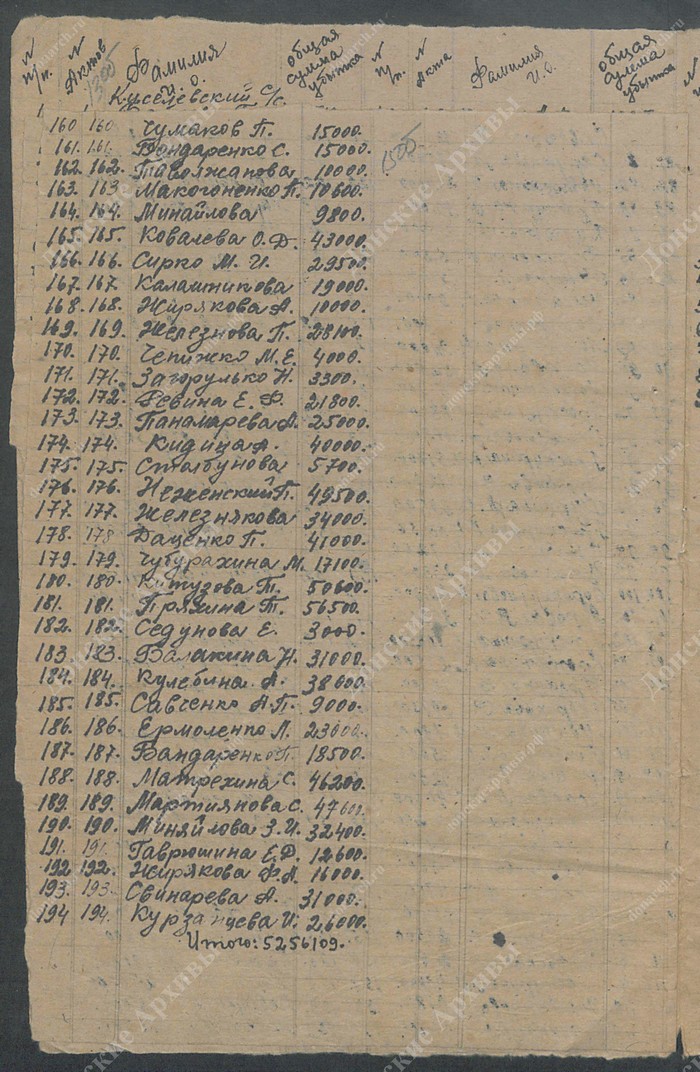 N п/п. N Актов Фамилия И. О. общая сумма убытка N п/п. N Акта Фамилия И. О. общая сумма убытка
1305
Киселевский С/с
160 160 Чумаков П. 15000.
1505
161. 161. Бондаренко С. 15000.
162. 162. Таволжанова 10000.
163. 163 Макогоненко П. 10600.
164. 164. Минайлова 9800.
165. 165. Ковалева О.Д. 43000.
166. 166. Сирко М. И. 29500.
167. 167. Калашникова 19000.
168. 168. Жирякова А. 10000.
169. 169. Железнова П. 28100.
170. 170. Чепижко М.Е. 4000.
171. 171. Загорулько Н. 3300.
172. 172. Ревина Е. Ф. 21800.
173. 173. Панамарева А. 25000.
174. 174. Кидица А. 40000.
175. 175. Сталбунова 5700.
176. 176. Неженский П. 49500.
177. 177. Железнякова 34000.
178. 178 Даценко П. 41000.
179. 179. Чубурахина М. 17100.
180. 180. Китузова Т. 50600.
181. 181. Пряхина Т. 56500.
182. 182. Седунова Е. 3000.
183. 183. Балакина Н. 31000.
184. 184. Кулебина А. 38600.
185. 185. Савченко А.П. 9000.
186. 186. Ермоленко Л. 23000.
187. 187. Бандаренко П. 18500.
188. 188. Матрехина С. 46200.
189. 189. Мартиянова С. 47600.
190. 190. Миняйлова З.И. 32400.
191. 191. Гаврюшина Е.Д. 12600.
192 192. Жирякова Ф.А. 16000.
193. 193. Свинарева А. 31000.
194 194. Курзанцева И. 26000.
Итого: 5256109.